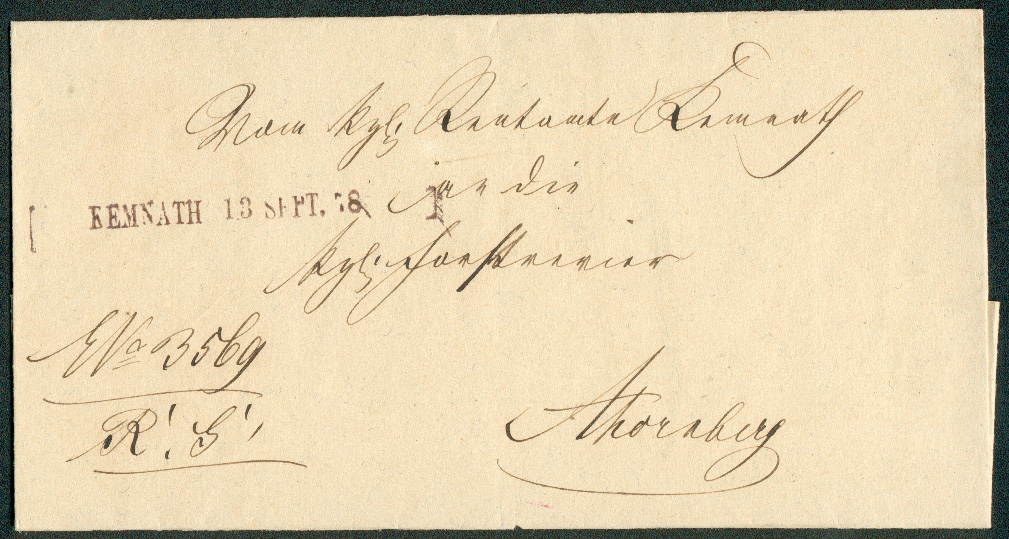 Vom Kgl: Rentamte Kemnath
an die
KEMNATH 13 SEPT. 78
Kgl: Forstrevier
ENo 3569
R! S!
Ahornberg